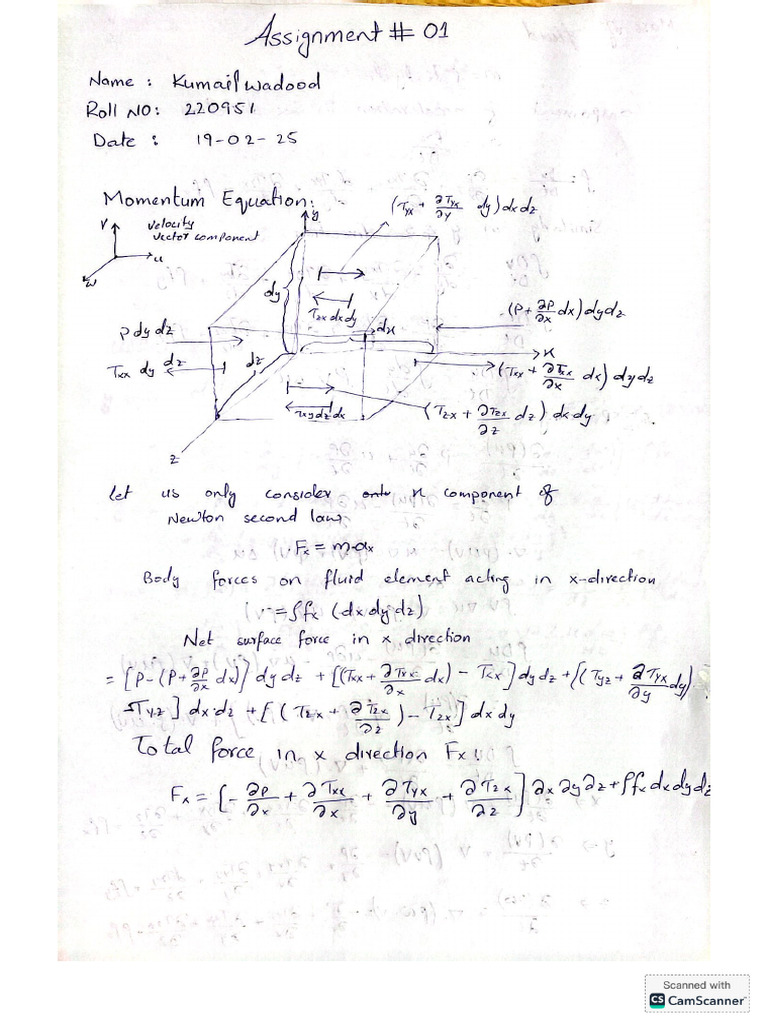 Assignment # 01
Name : Kumail Wadood
Roll NO: 220951
Date : 19-02-25
Momentum Equation:
(τyx + ∂τyx/∂y dy) dx dz
y
v
velocity
vector component
u
w
dy
τzx dx dy
dx
(P + ∂P/∂x dx) dy dz
P dy dz
τxx dy dz
dz
x
(τxx + ∂τxx/∂x dx) dy dz
(τzx + ∂τzx/∂z dz) dx dy
z
let us only consider x component of
Newton second law
Fx = m·ax
Body forces on fluid element acting in x-direction
= ρfx (dx dy dz)
Net surface force in x direction
= [P-(P+∂P/∂x dx)] dy dz + [(τxx + ∂τxx/∂x dx) - τxx] dy dz + [(τyz + ∂τyx/∂y dy)
-τyz] dx·dz + [(τzx + ∂τzx/∂z) - τzx] dx dy
Total force in x direction Fx:
Fx = [-∂P/∂x + ∂τxx/∂x + ∂τyx/∂y + ∂τzx/∂z] ∂x ∂y ∂z + ρfx dx dy dz
Scanned with
CS CamScanner